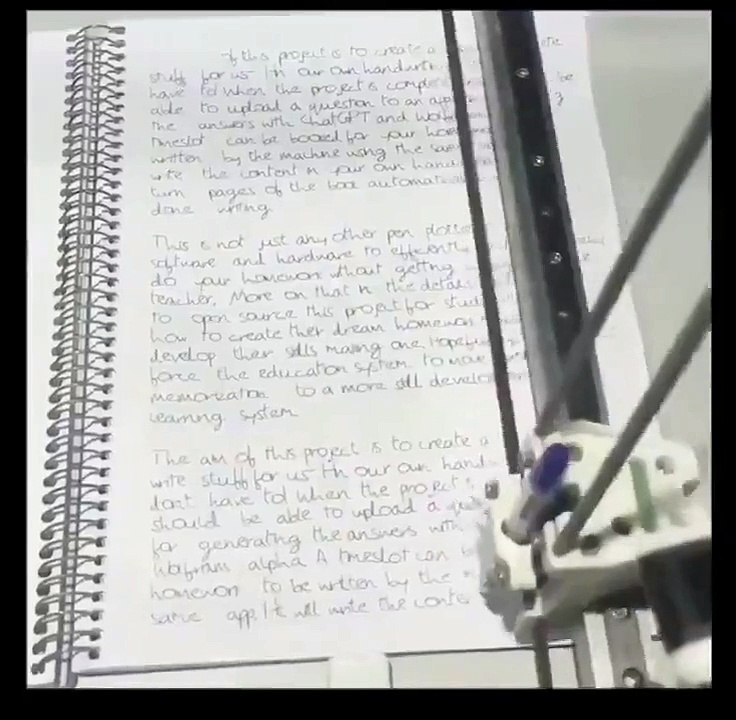 of this project is to create a
stuff for us in our own handwrit
have to! when the project is comple be
able to upload a question to an app
the answers with ChatGPT and Wolf
timeslot can be booked for your home
written by the machine using the same
write the content in your own hand
turn pages of the book automatic
done writing
This is not just any other pen plotter
software and hardware to efficiently
do your homework without getting
teacher. More on that in the details
to open source this project for stud
how to create their dream homework
develop their skills making one. Hopefully
force the education system to move
memorization to a more skill develop
learning system
The aim of this project is to create a
write stuff for us in our own hand
dont have to! when the project
should be able to upload a
for generating the answers with
Wolfram alpha A timeslot can
homework to be written by the
same app. It will write the conte